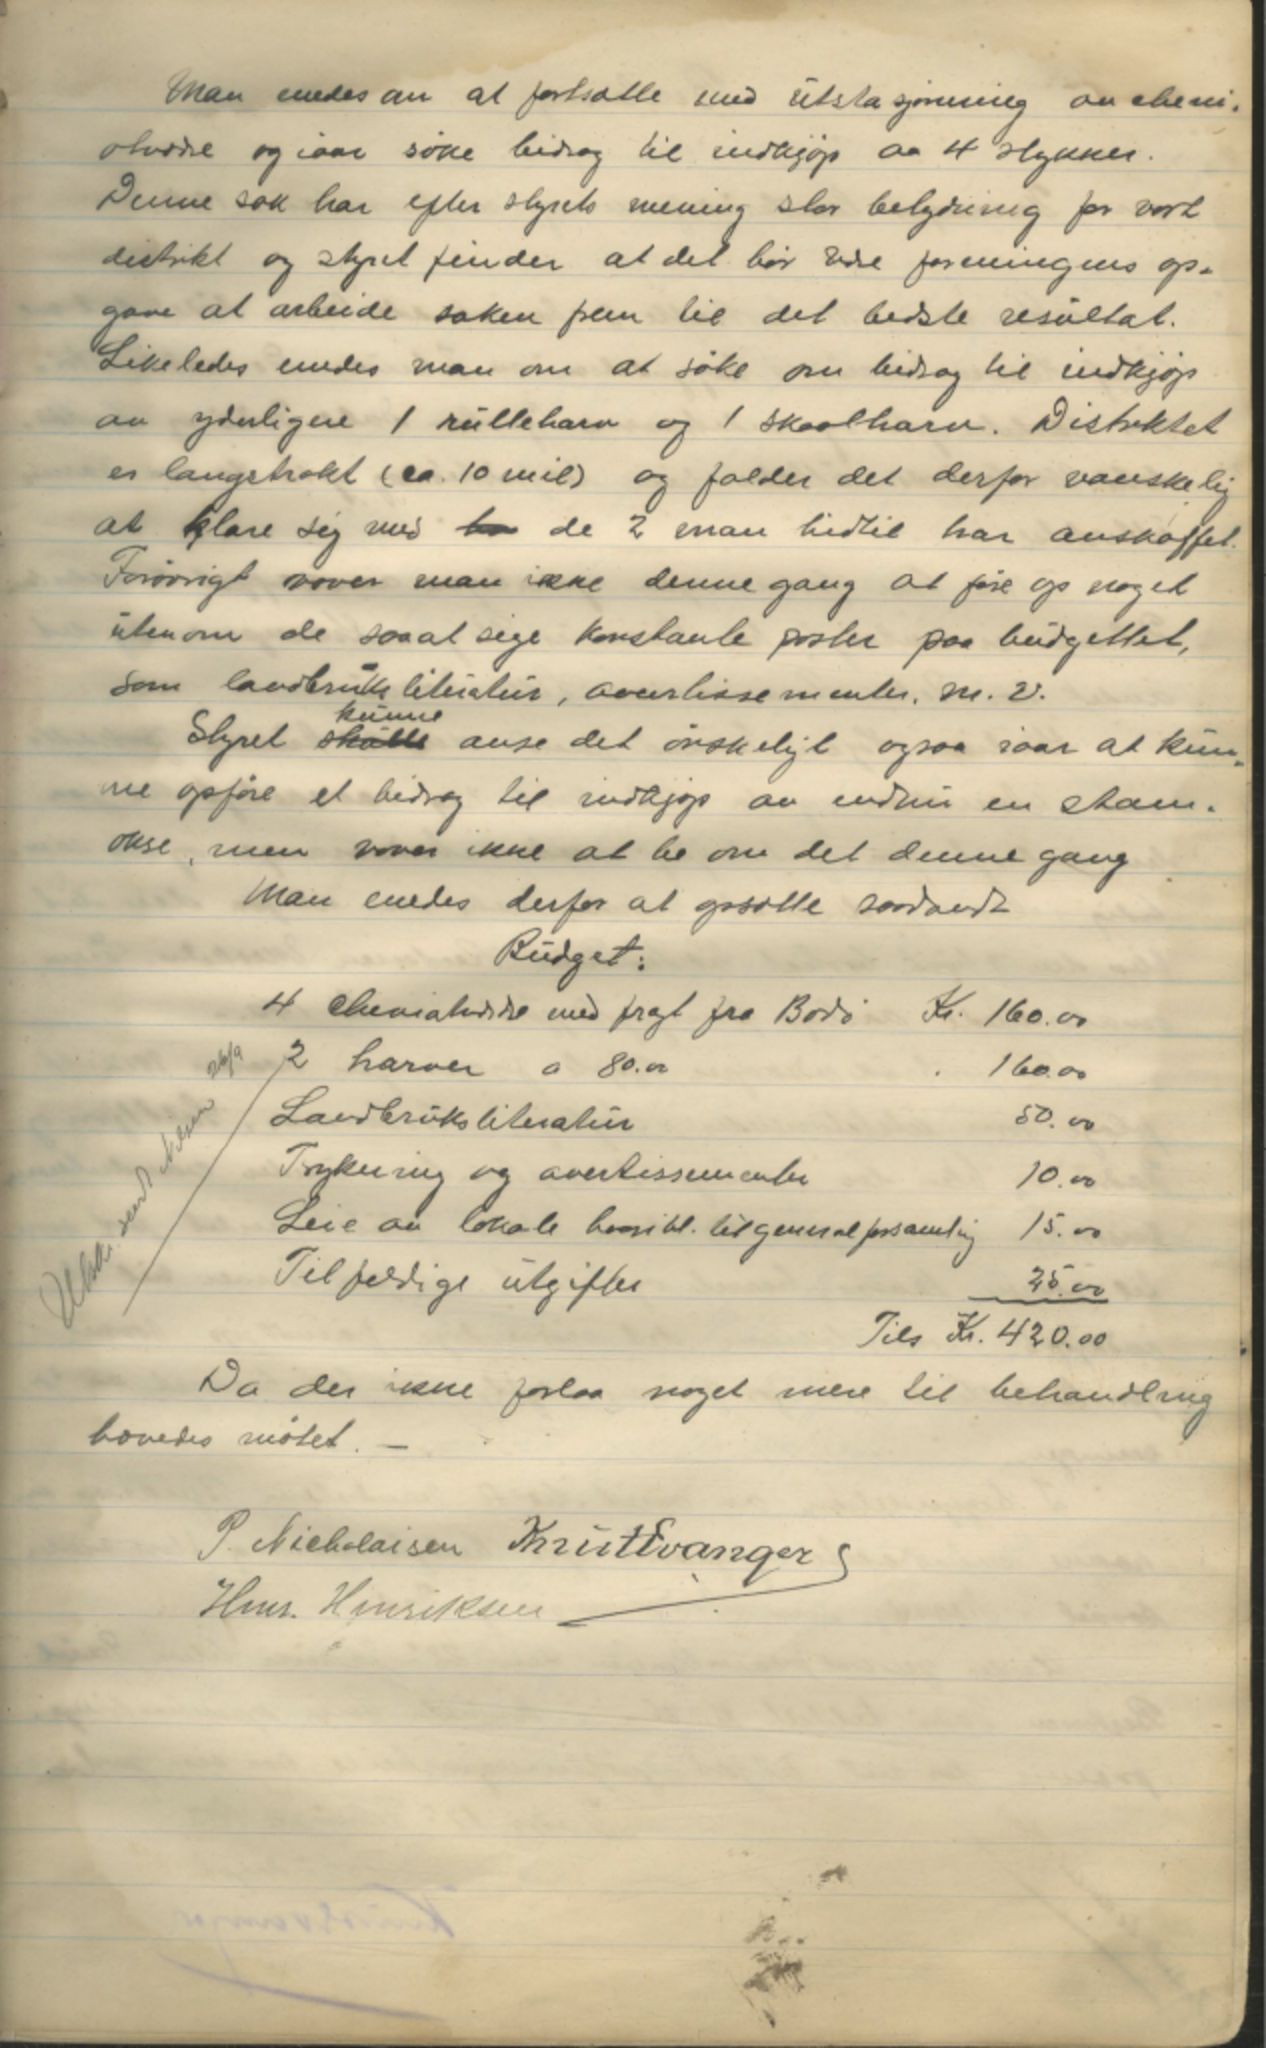 Man enedes om at fortsætte med utstasjonering av chevi-
otvædre og iaar søke bidrag til indkjøp av 4 stykker.
Denne sak har efter styrets mening stor betydning for vort
distrikt og styret finder at det bør være foreningens op-
gave at arbeide saken frem til det bedste resultat.
Likeledes enedes man om at søke om bidrag til indkjøp
av yderligere 1 rulleharv og 1 skaalharv. Distriktet
er langstrakt (ca. 10 mil) og falder det derfor vanskelig
at klare sig med de 2 man hidtil har anskaffet.
Forøvrigt vover man ikke denne gang at føre op noget
utenom de saaat sige konstante poster paa budgettet,
som landbruksliteratur, avertissementer. m. v.
Styret kunne anse det ønskeligt ogsaa iaar at kun-
ne opføre et bidrag til indkjøp av endnu en stam-
okse, men vover ikke at be om det denne gang
Man enedes derfor at opsætte saadandt
Budget:
4 cheviotvædre med fragt fra Bodø Kr. 160.00
2 harver a 80.00 " 160.00
Landbruksliteratur 50.00
Trykning og avertissementer 10.00
Leie av lokale til generalforsamling 15.00
Tilfeldige utgifter 25.00
Tils Kr. 420.00
sendt Nilsen 26/9
Da der ikke forlaa noget mere til behandling
hævedes møtet. —
P. Nicholaisen Knut Evanger
Hnr. Henriksen